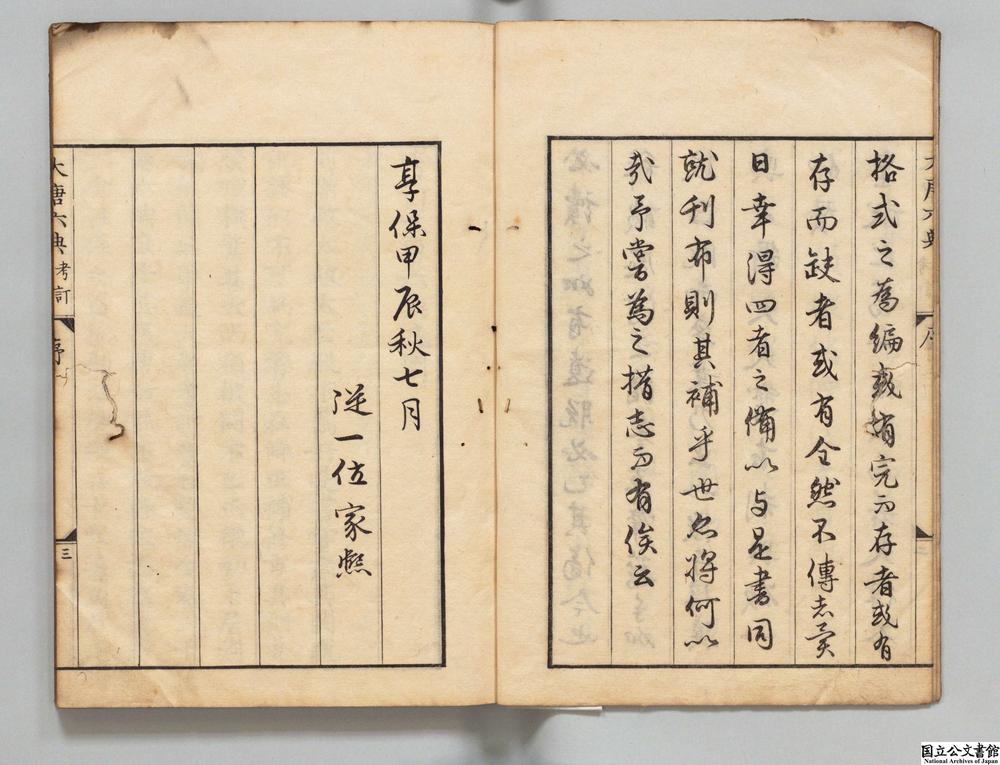 格式之為編或稍完而存者或有
存而缺者或有全然不傳者矣
日幸得四者之備以與是書同
就刊布則其補乎世也將何以
哉予嘗為之措志而有俟云
享保甲辰秋七月
從一位家熈
大唐六典考訂
序
三
国立公文書館
National Archives of Japan